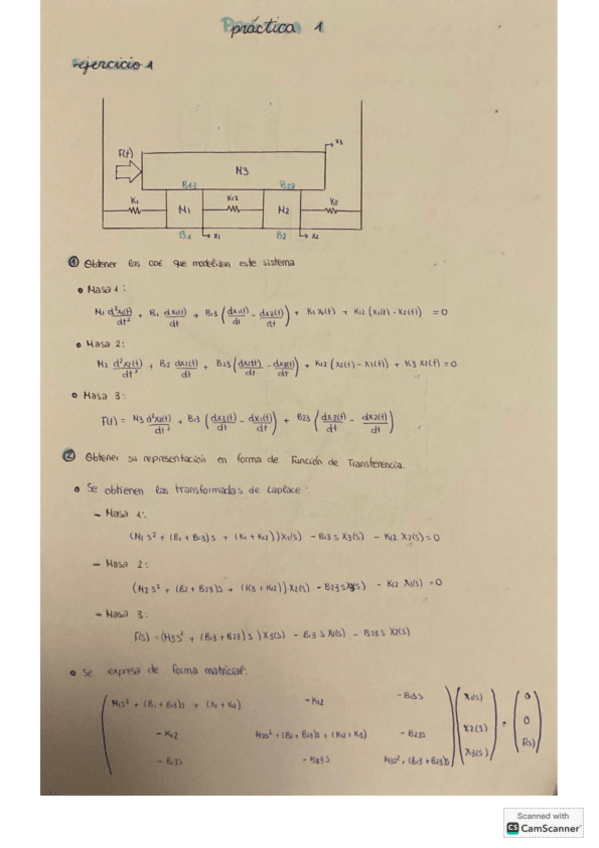 práctica 1
-ejercicio 1
x3
F(t)
M3
B13
B23
K1
K12
K3
M1
M2
B1
x1
B2
x2
① Obtener las CDE que modelizan este sistema
• Masa 1:
M1 d²x1(t)/dt² + B1 dx1(t)/dt + B13 (dx1(t)/dt - dx3(t)/dt) + K1 x1(t) + K12 (x1(t) - x2(t)) = 0
• Masa 2:
M2 d²x2(t)/dt² + B2 dx2(t)/dt + B23 (dx2(t)/dt - dx3(t)/dt) + K12 (x2(t) - x1(t)) + K3 x2(t) = 0
• Masa 3:
F(t) = M3 d²x3(t)/dt² + B13 (dx3(t)/dt - dx1(t)/dt) + B23 (dx3(t)/dt - dx2(t)/dt)
② Obtener su representación en forma de Función de Transferencia.
• Se obtienen las transformadas de Laplace:
- Masa 1:
(M1 s² + (B1 + B13)s + (K1 + K12)) X1(s) - B13 s X3(s) - K12 X2(s) = 0
- Masa 2:
(M2 s² + (B2 + B23)s + (K3 + K12)) X2(s) - B23 s X3(s) - K12 X1(s) = 0
- Masa 3:
F(s) = (M3 s² + (B13 + B23) s) X3(s) - B13 s X1(s) - B23 s X2(s)
• Se expresa de forma matricial:
M1s² + (B1 + B13)s + (K1 + K12) -K12 -B13s X1(s) 0
-K12 M2s² + (B2 + B23)s + (K12 + K3) -B23s X2(s) = 0
-B13s -B23s M3s² + (B13 + B23)s X3(s) F(s)
Scanned with
CS CamScanner